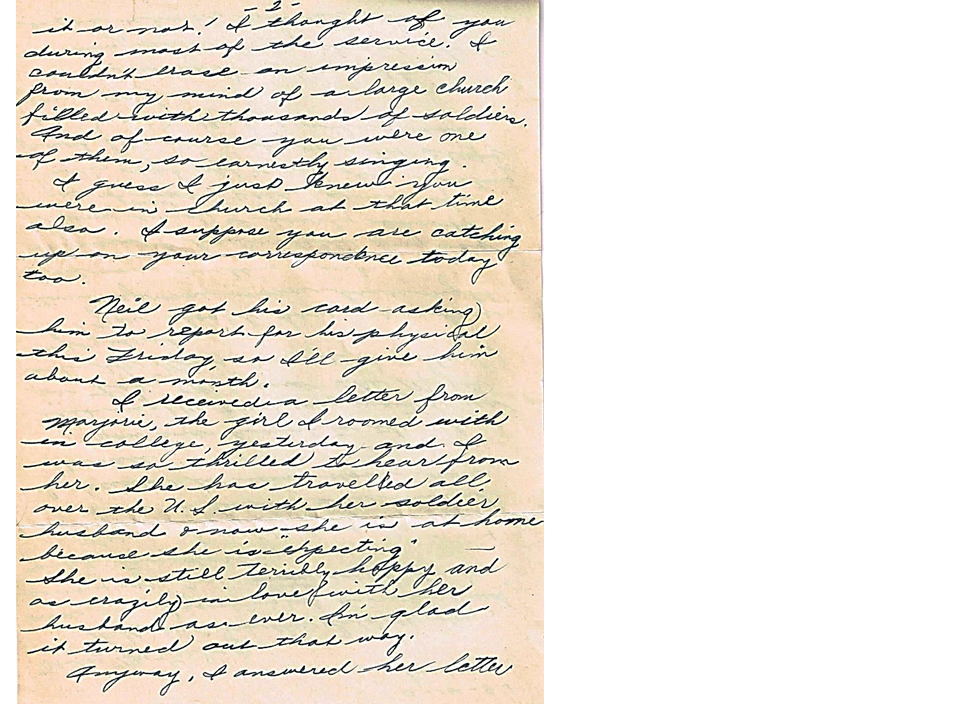 - 2 -
it or not! I thought of you
during most of the service. I
couldn't erase an impression
from my mind of a large church
filled with thousands of soldiers.
And of course you were one
of them, so earnestly singing.
I guess I just knew you
were in church at that time
also. I suppose you are catching
up on your correspondence today
too.
Neil got his card asking
him to report for his physical
this Friday, so I'll give him
about a month.
I received a letter from
Marjorie, the girl I roomed with
in college, yesterday and I
was so thrilled to hear from
her. She has travelled all
over the U.S with her soldier
husband & now she is at home
because she is "expecting" —
She is still terribly happy and
as crazily in love with her
husband as ever. I'm glad
it turned out that way.
Anyway, I answered her letter